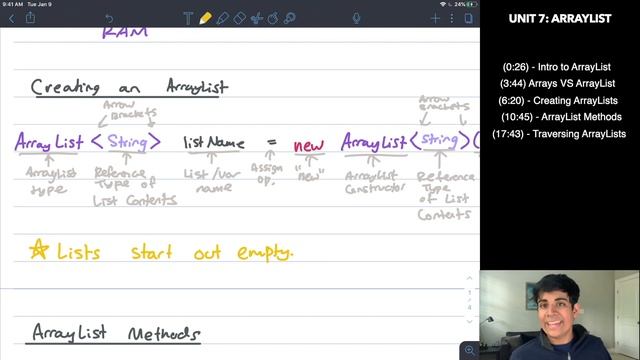 9:41 AM Tue Jan 9
24%
RAM
Creating an ArrayList
Arrow Brackets
Arrow brackets
ArrayList <String> listName = new ArrayList<String>(
ArrayList type
Reference Type of List Contents
List/Var name
Assign op.
"new"
ArrayList Constructor
Reference Type of List Contents
☆ Lists start out empty.
ArrayList Methods
1
4
UNIT 7: ARRAYLIST
(0:26) - Intro to ArrayList
(3:44) Arrays VS ArrayList
(6:20) - Creating ArrayLists
(10:45) - ArrayList Methods
(17:43) - Traversing ArrayLists